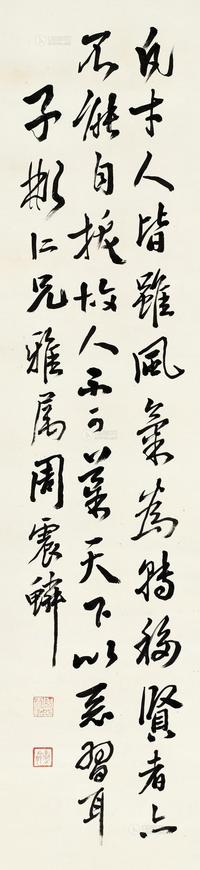 凡中人皆虽風氣為轉移賢者亦
不能自拔故人不可業天下以惡習耳
子彬仁兄雅属周震鳞